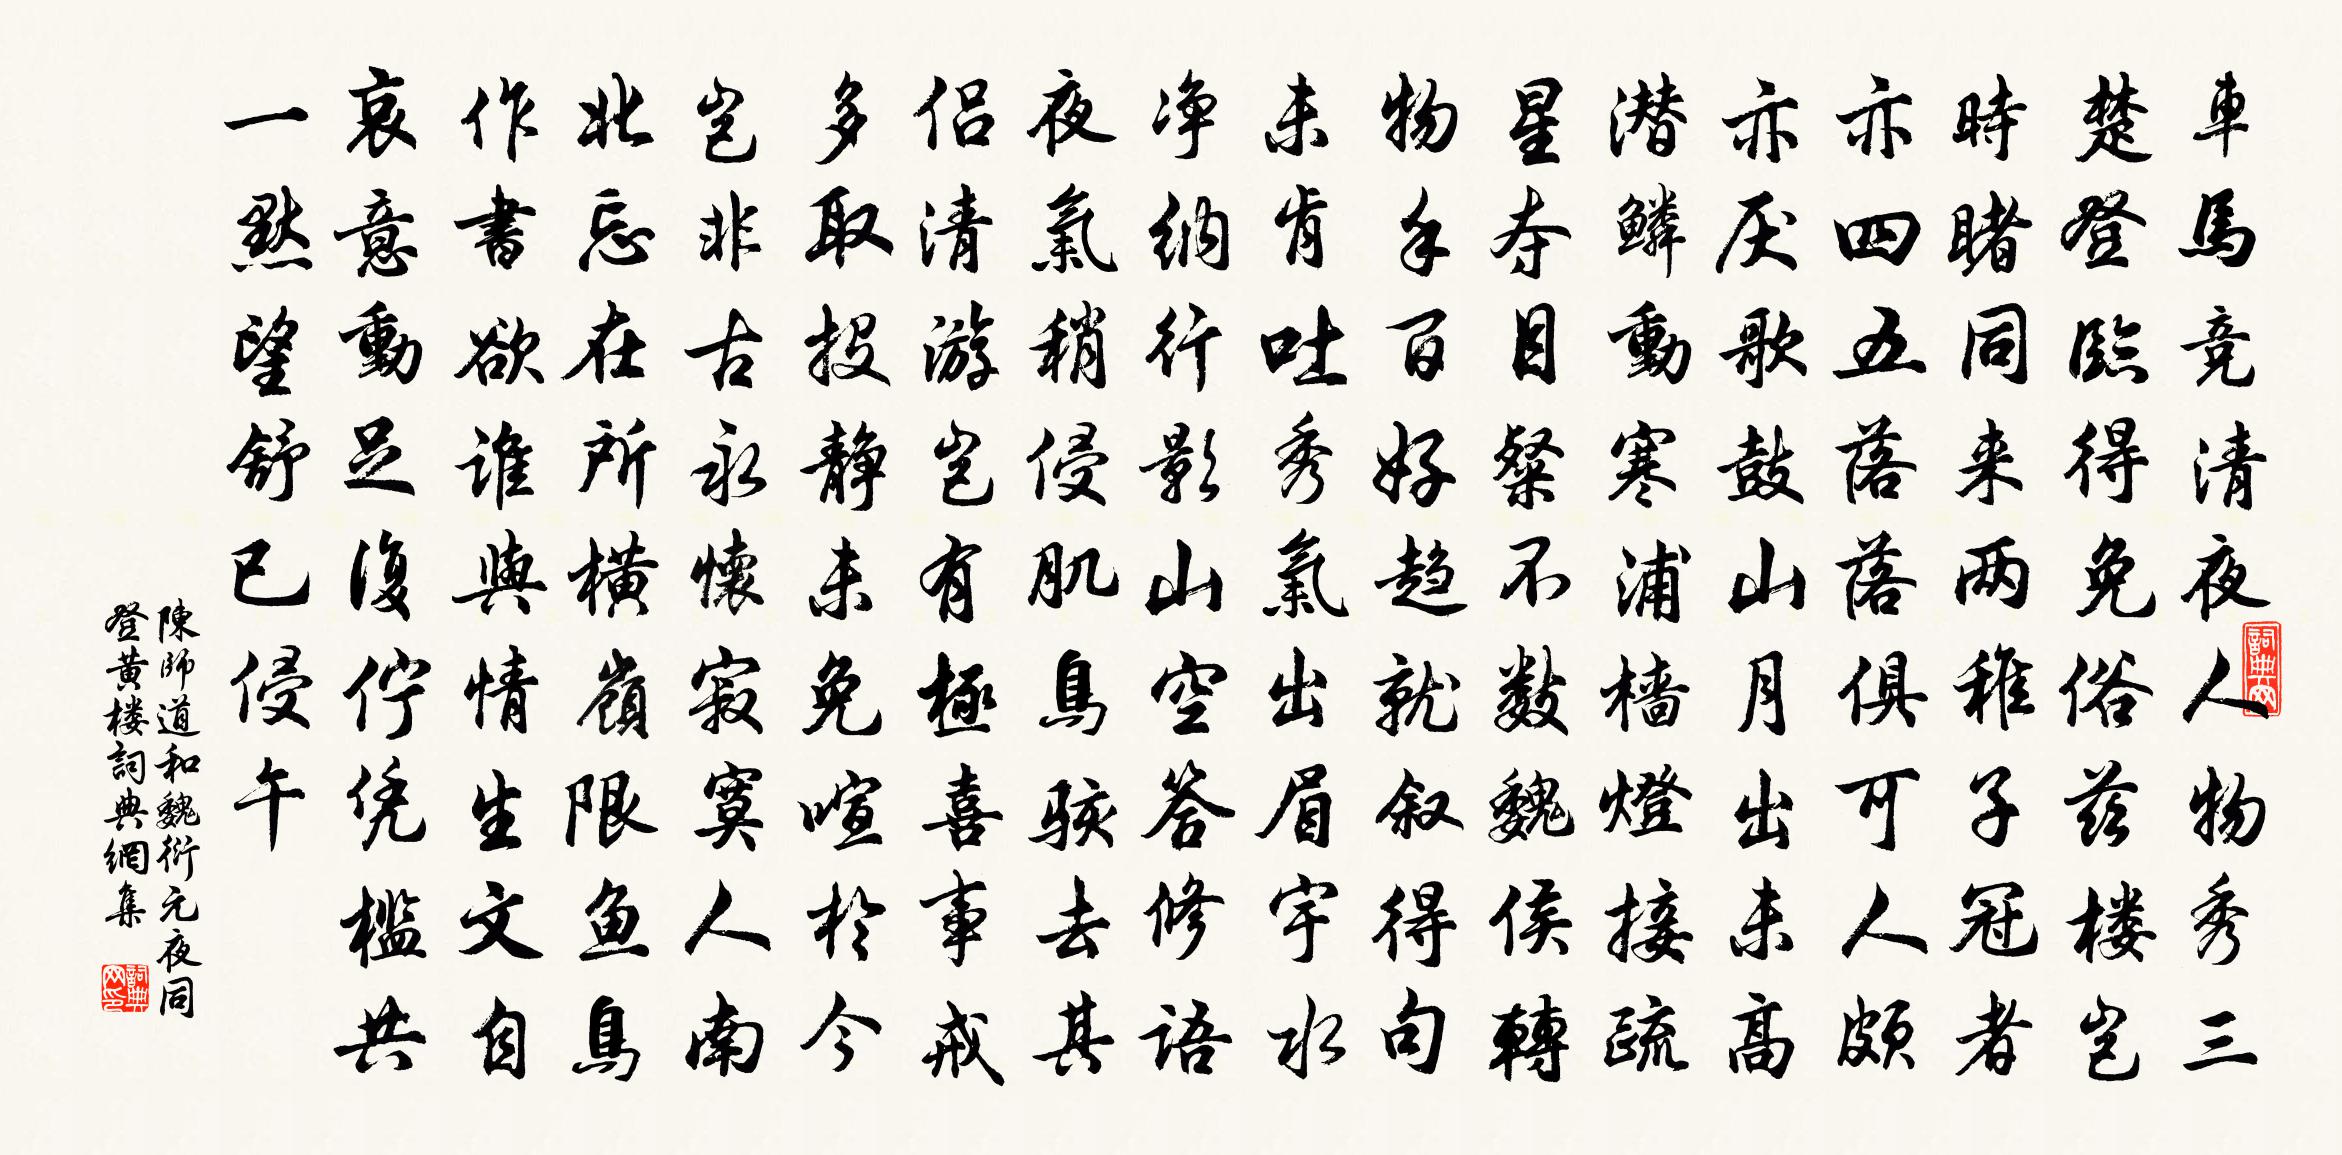 車馬竞清夜人物秀三
楚登臨得免俗茲楼豈
時睹同来两稚子冠者
亦四五落落俱可人頗
亦厌歌鼓山月出未高
潜鳞動寒浦檣燈接疏
星夺目粲不数魏侯轉
物手百好趋就叙得句
未肯吐秀氣出眉宇水
净纳行影山空答修语
夜氣稍侵肌鳥骇去其
侣清游豈有極喜事戒
多取投静未免喧於今
豈非古永懷寂寞人南
北忘在所横嶺限鱼鳥
作書欲谁與情生文自
哀意動足復佇凭槛共
一默望舒已侵午
陳師道和魏衍元夜同
登黄楼詞典網集
詞典网
詞典网印